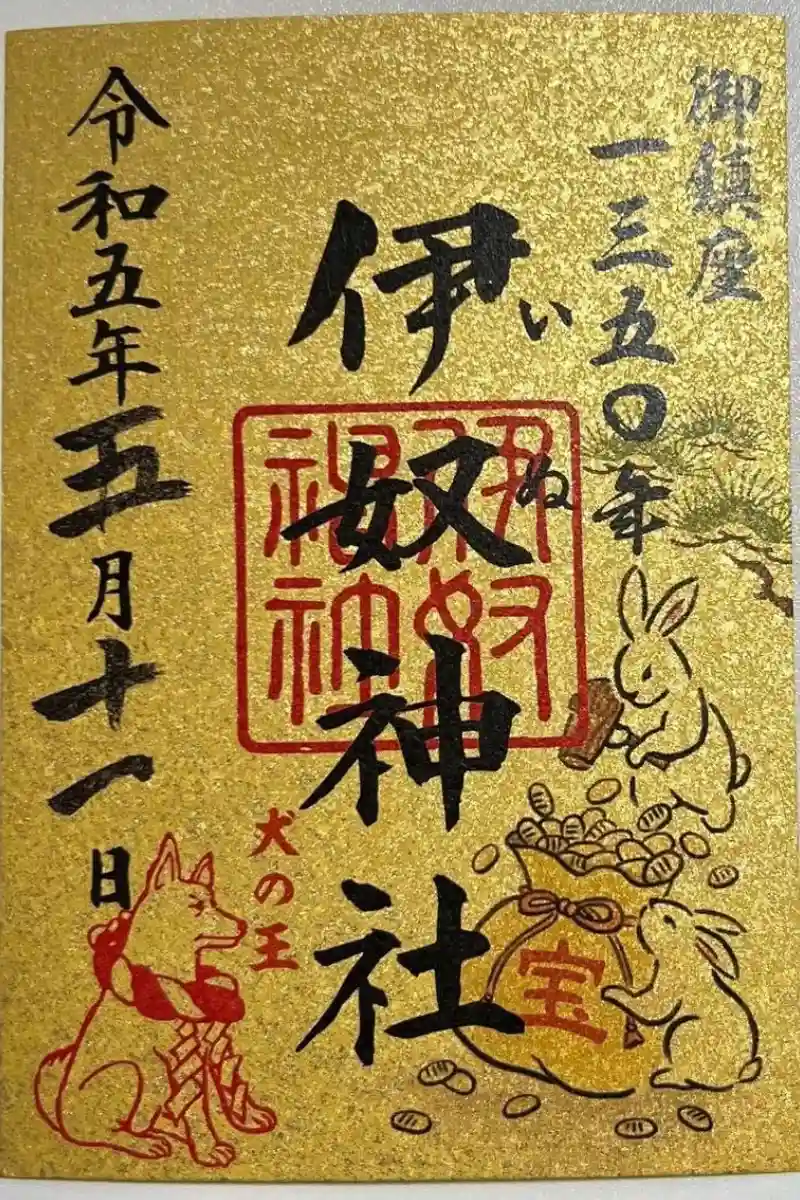 御鎮座
一三五〇年
伊奴神社
いぬ
伊奴神社
犬の王
宝
令和五年五月十一日